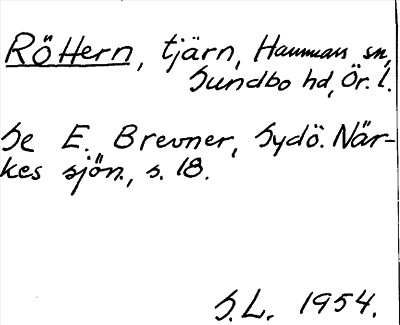 Röttern, tjärn, Hammars sn,
Sundbo hd, Ör. l.
Se E. Brevner, Sydö. När-
kes sjön., s. 18.
S.L. 1954.